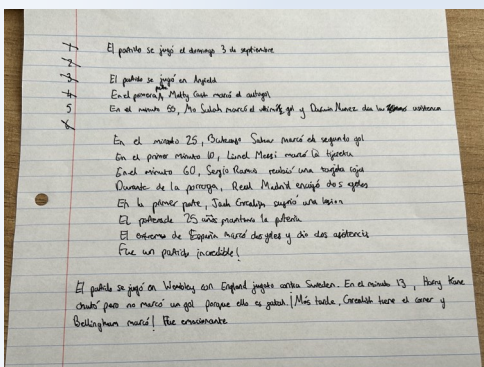 1 El partido se jugó el domingo 3 de septiembre
2
3 El partido se jugó en Anfield
4 En el primera parte Matty Cash marcó el autogol
5 En el minuto 55, Mo Salah marcó el gol y Darwin Nunez dio la asistencia
6
En el minuto 25, Bukayo Saka marcó el segundo gol
En el primer minuto 10, Lionel Messi marcó la tijereta
En el minuto 60, Sergio Ramos recibió una tarjeta roja
Durante de la porroga, Real Madrid encajó dos goles
En la primer parte, Jack Grealish sugrió una lesion
El portero de 25 años mantuvo la portería
El extremo de España marcó dos goles y dio dos asistencis
Fue un partido increible!
El partido se jugó en Wembley con England jugato contra Sweden. En el minuto 13, Harry Kane
chutó pero no marcó un gol porque ello es . ¡Más tarde, Grealish tiene el corner y
Bellingham marcó! Fue emocionante